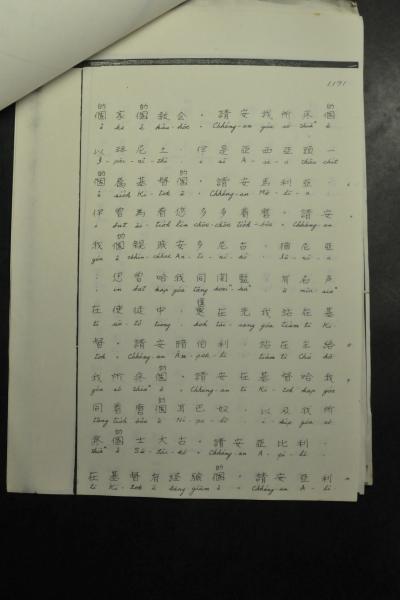 1191
的 的 的
個 家 個 教會 。 請安 我 所 疼 個
ê ke ê kàu-hōe . Chhéng-an góa só͘ thiàⁿ ê
以 拜 尼 土 伊 是 亞 西 亞 頭 一
í - pài - nî - thó͘ i sī A - se - a thâu chi̍t
的 的
個 屬 基督 個 。 請安 馬利亞 .
ê sio̍k Ki-tok ê . Chhéng-an Má-lī-a .
伊 曾 為著 恁 多多 着磨 。 請安
的
我 個 親戚 安多尼古 . 猶尼亞
góa ê chhin-chhek An-to-nî-kó͘ . Iû-nî-a
. 𪜶 曾 哈 我 同 關監 . 有名聲
in bat kap góa tâng koaiⁿ-kaⁿ . ū miâ-siaⁿ
在 使徒 中 . 還 在先 我 站在 基
tī sù-tô͘ tiong . koh tāi-seng góa tiàm tī Ki
督 。 請安 暗伯利 . 站在 主 給
tok . Chhéng-an Am-pek-lī . tiàm tī Chú hō͘
的
我 所 疼 個 。 請安 在 基督 哈 我
góa só͘ thiàⁿ ê . Chhéng-an tī Ki-tok kap góa
的
同 着磨 個 耳巴奴 . 以及 我 所
tâng tio̍h-bôa ê Ní-pa-lô͘ . í-ki̍p góa só͘
的
疼 個 士大古 。 請安 亞比利 .
thiàⁿ ê Sū-tāi-kó͘ . Chhéng-an A-pí-lī .
的
在 基督 有 經驗 個 。 請安 亞利
tī Ki-tok ū keng-giām ê . Chhéng-an A-lī